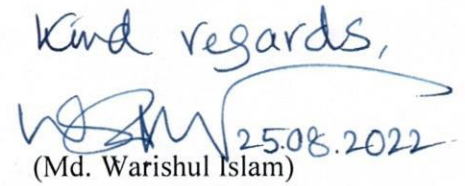 Kind regards,
25.08.2022
(Md. Warishul Islam)